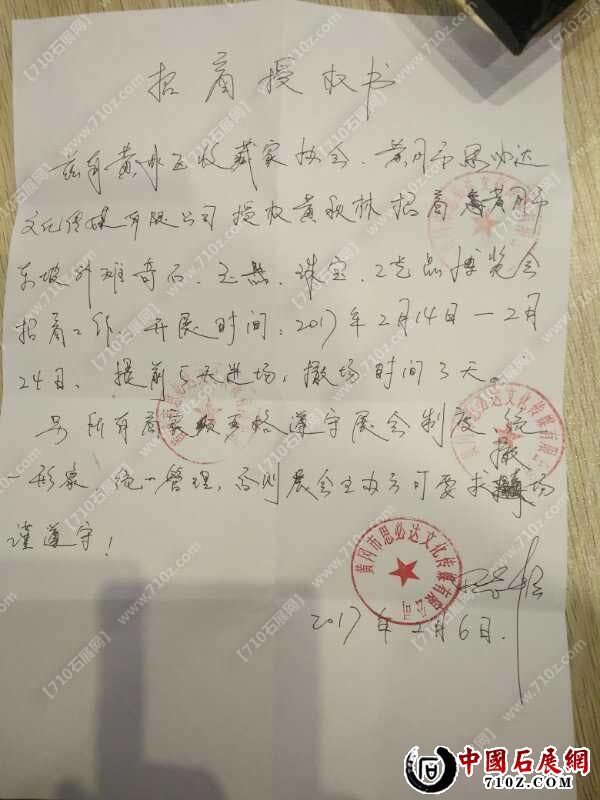 招商授权书
兹有黄冈收藏家协会、黄冈市思必达
文化传媒有限公司授权黄秋林招商黄冈市
东坡外滩奇石、玉器、珠宝、工艺品博览会
招商工作，开展时间：2017年2月14日—2月
24日、提前5天进场，撤场时间3天。
另所有商家须严格遵守展会制度 统
一形象 统一管理，否则展会主办方可要求撤场
谨遵守！
黄冈市思必达文化传媒有限公司
2017年2月6日.
【710石展网】
www.710z.com
中國石展網
710Z.COM